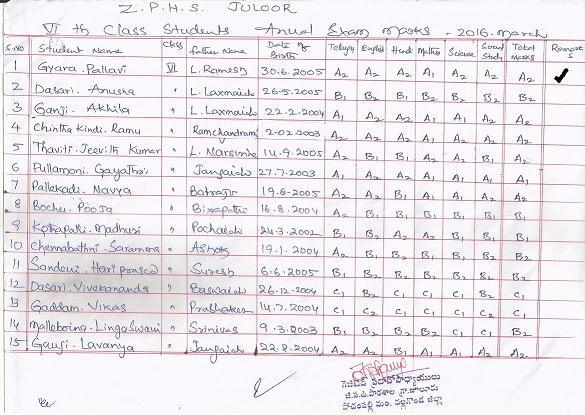 Z. P. H. S. JULOOR
VI th Class Students Anual Exam Marks - 2016. March
S.NO Student Name Class Father Name Date of Birth Telugu English Hindi Maths Science Social Study Total Marks Remarks
1 Gyara. Pallavi VI L. Ramesh 30.6.2005 A2 A2 A2 A1 A2 A2 A2 ✓
2 Dasari. Anusha " L. Laxmaiah 26.5.2005 B1 B2 B1 B2 B2 B2 B2
3 Ganji. Akhila " L. Laxmaiah 22.2.2004 A1 A2 A2 A1 A2 A2 A1
4 Chintha Kindi. Ramu " Ramchandram 2.02.2003 A2 A2 A2 A2 A2 A2 A2
5 Thaviti. Jeevith Kumar " L. Narsimha 14.9.2005 A2 B1 B1 A2 A2 B1 A2
6 Pullamoni. Gayathri " Jangaiah 27.7.2003 A1 A2 A1 A1 A2 A2 A1
7 Pallekadi. Navya " Batraju 19.6.2005 A2 A2 B1 A2 A2 A2 A2
8 Bochu. Pooja " Birapathi 16.8.2004 A2 B1 B1 B1 B1 B1 B1
9 Kothapalli. Madhusi " Pochaiah 24.3.2002 B1 B2 A2 A2 B1 B1 B1
10 Chennabathni. Saramma " Ashok 19.1.2004 A2 B1 B1 B1 B1 B1 B1
11 Sandevi. Hari prasad " Suresh 6.6.2005 B1 B2 B2 B2 B2 B2 B2
12 Dasari. Vivekananda " Baswaiah 26.12.2004 C1 B2 C1 C1 B2 C1
13 Gaddam. Vikas " Prabhaker 14.7.2004 C1 C2 C1 C1 C1 C1 C1
14 Malloboina. Linga Swami " Srinivas 9.3.2003 B1 B2 B2 B2 C1 C1 B2
15 Gauji. Lavanya " Jangaiah 22.8.2004 A2 A2 B1 A2 A2 A2 A2
గెజిటెడ్ ప్రధానోపాధ్యాయులు
జి.ప.ఉ.పాఠశాల గ్రా.జూలూరు
పోచంపల్లి మం. నల్లగొండ జిల్లా